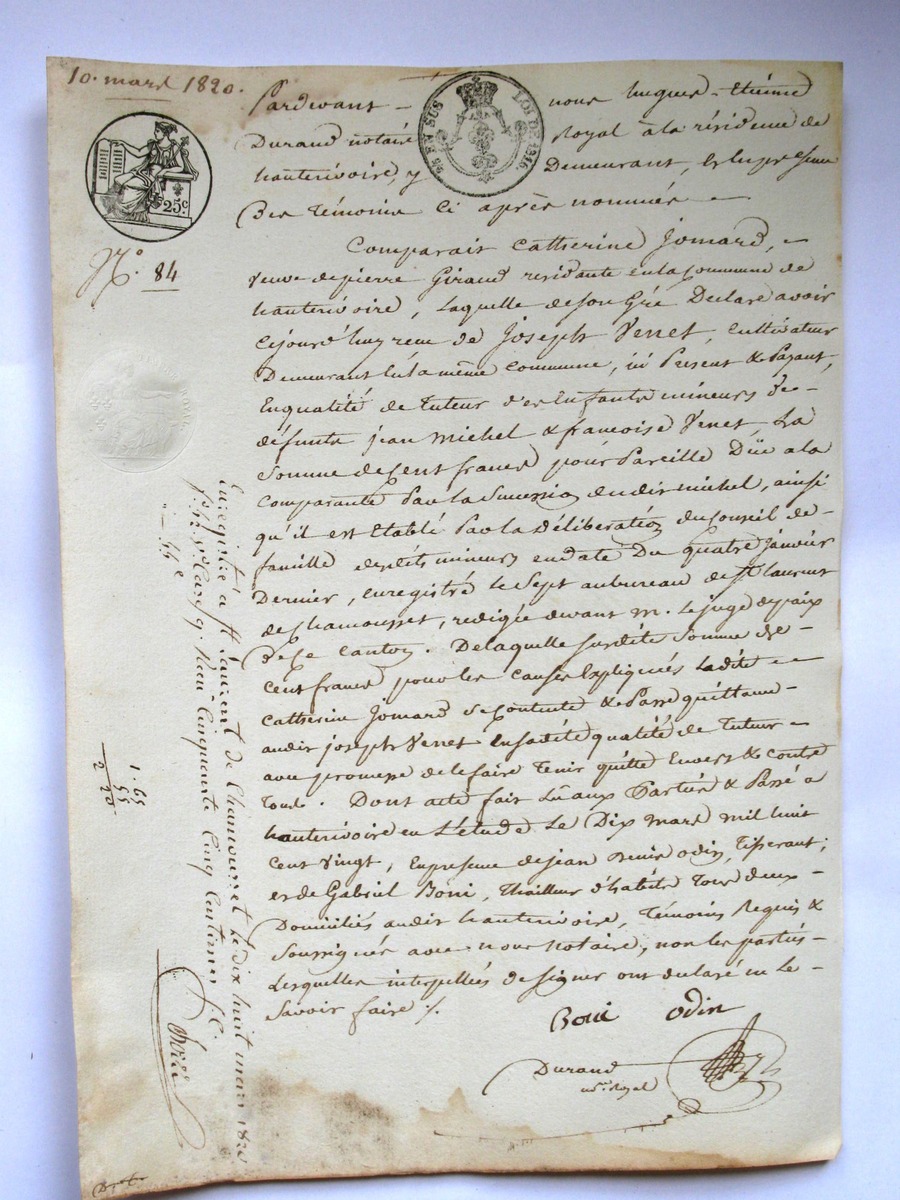 10. mars 1820.
25 EN SUS LOI DE 1816.
25c.
N.° 84
Pardevant - nous hugues-Etiénne
Durand notaire Royal à la résidence de
hauterivoire, y Demeurant, & en presence
Des témoins ci après nommés -
Comparait Catherine Jomard, -
veuve de pierre Giraud residante en la Commune de
hauterivoire, Laquelle de son Gré Declare avoir
cejourd'huy reçu de Joseph Venet, Cultivateur
Demeurant En la même Commune, ici Present & Payant,
En qualité de tuteur d'es Enfants mineurs de-
défunts jean michel & francoise Venet, La
Somme de Cent francs pour Pareille Düe a la
Comparante Par la Succession dudit michel, ainsi
qu'il est Etablé Par la Délibération du Conseil de-
famille desdits mineurs en date Du quatre Janvier
Dernier, enregistré le Sept au bureau de St laurent
de Chamousset, redigée devant m. Le juge de paix
de ce Canton. De laquelle susdite Somme de
Cent francs pour les Causes Expliquées Ladite -
Catherine Jomard Se Contente & Passe quittance-
audit joseph Venet En sadite qualité de tuteur -
avec promesse de le faire tenir quitte Envers & Contre
tous. Dont acte fait Lû aux Parties & Passé à
hauterivoire en L'étude Le Dix mars mil huit
Cent vingt, En presence de jean Denis odin, tisserant;
et de Gabriel Boni, thailleur d'habits tous deux-
Domiciliés audit hauterivoire, témoins Requis &
Soussignés avec nous Notaire, non les parties-
Lesquelles interpellées de signer ont declaré ne Le-
Savoir faire ./.
Boni odin
Durand
nre Royal
Enregistré à St Laurent de Chamousset le dix huit mars 1820
Reçu Cinquante Cinq Centimes
55 c
1.65
55
2 20